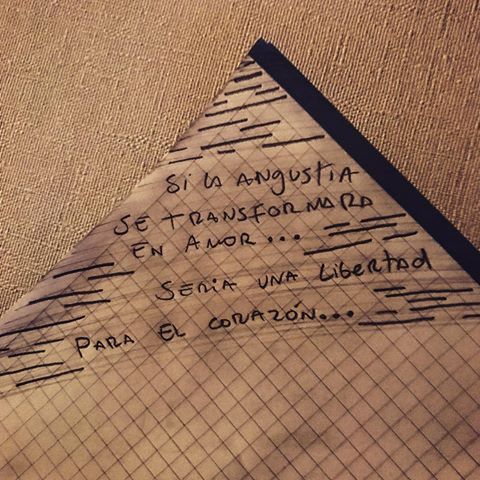 Si la angustia
se transformara
en amor...
seria una libertad
para el corazón...